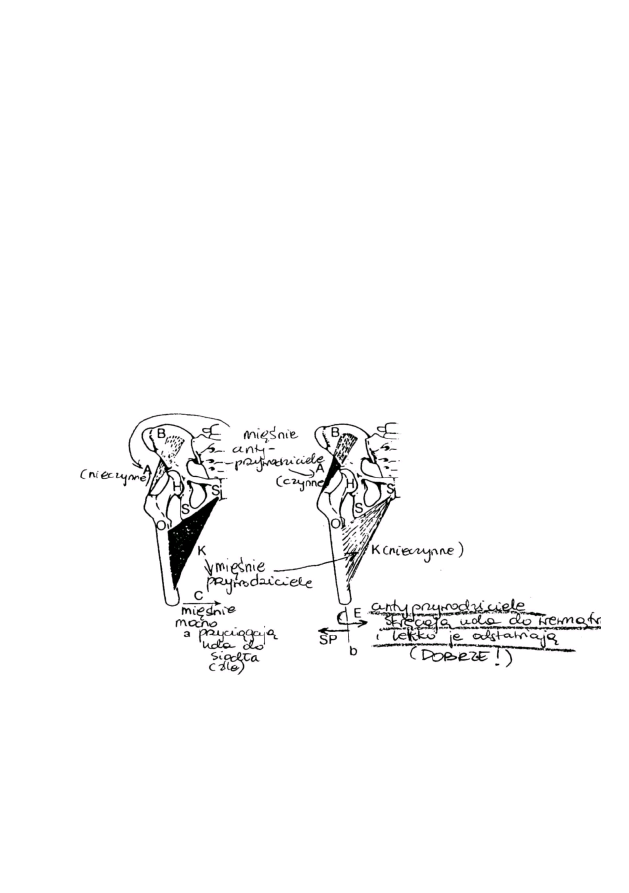 B
A
(nieczynne)
H
S
S
O
K
mięśnie
przywodziciele
C
mięśnie
mocno
a przyciągają
uda do
siodła
(źle)
mięśnie
anty-
przywodziciele
(czynne)
B
A
H
S
S
O
K (nieczynne)
E
SP
b
antyprzywodziciele
skręcają uda do wewnątr
i lekko je odstawiają
(DOBRZE!)